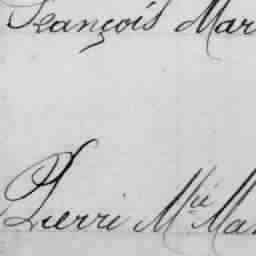 François Mar
Pierre Mie Mar